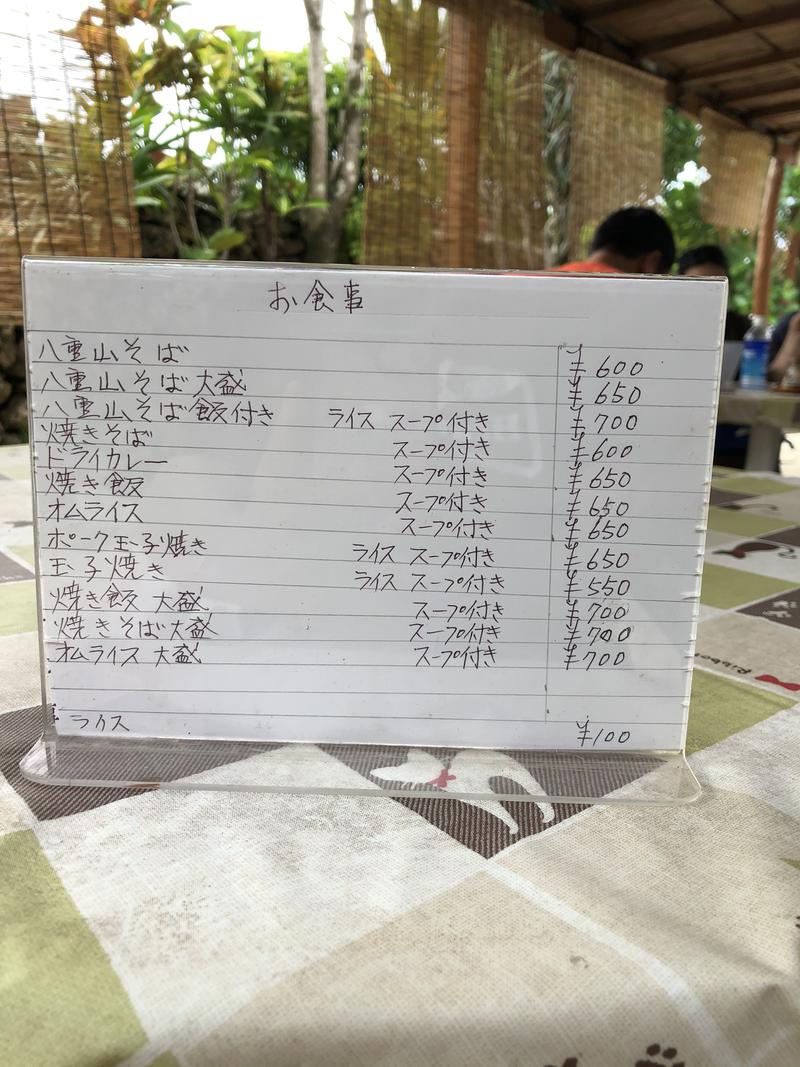 お食事
八重山そば ¥600
八重山そば大盛 ¥650
八重山そば飯付き ライス スープ付き ¥700
焼きそば スープ付き ¥600
ドライカレー スープ付き ¥650
焼き飯 スープ付き ¥650
オムライス スープ付き ¥650
ポーク玉子焼き ライス スープ付き ¥650
玉子焼き ライス スープ付き ¥550
焼き飯 大盛 スープ付き ¥700
焼きそば大盛 スープ付き ¥700
オムライス 大盛 スープ付き ¥700
ライス ¥100